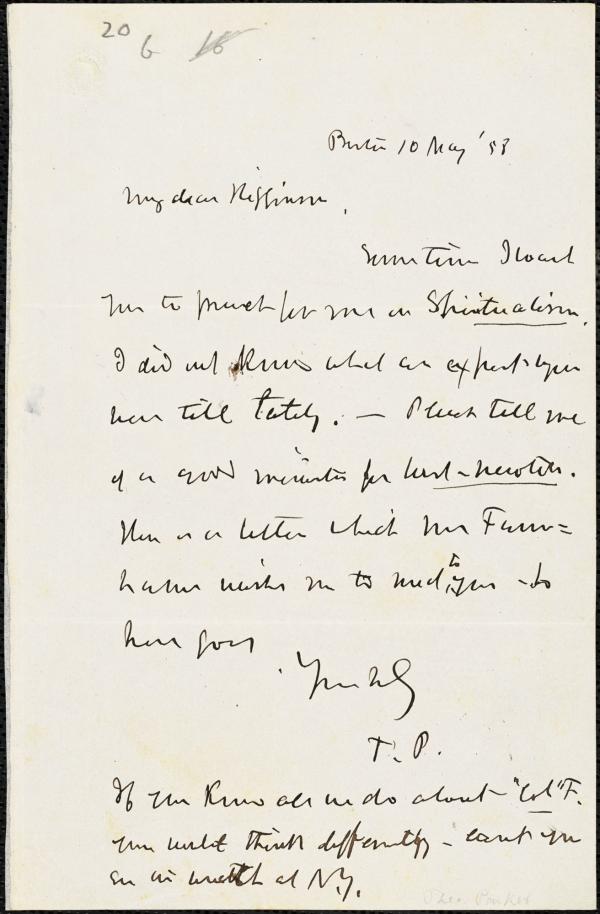 20 6 16
Boston 10 May '58
My dear Higginson,
Some time I want
you to preach for me on Spiritualism.
I did not know what an expert you
were till lately. — Please tell me
of a good minister for West-Newton.
Here is a letter which Mrs Farn=
ham wishes me to send to you — so
here goes
Yours truly
T. P.
If you knew all we do about "Col" F.
you would think differently — can't you
see us with at N.Y.
Theo. Parker